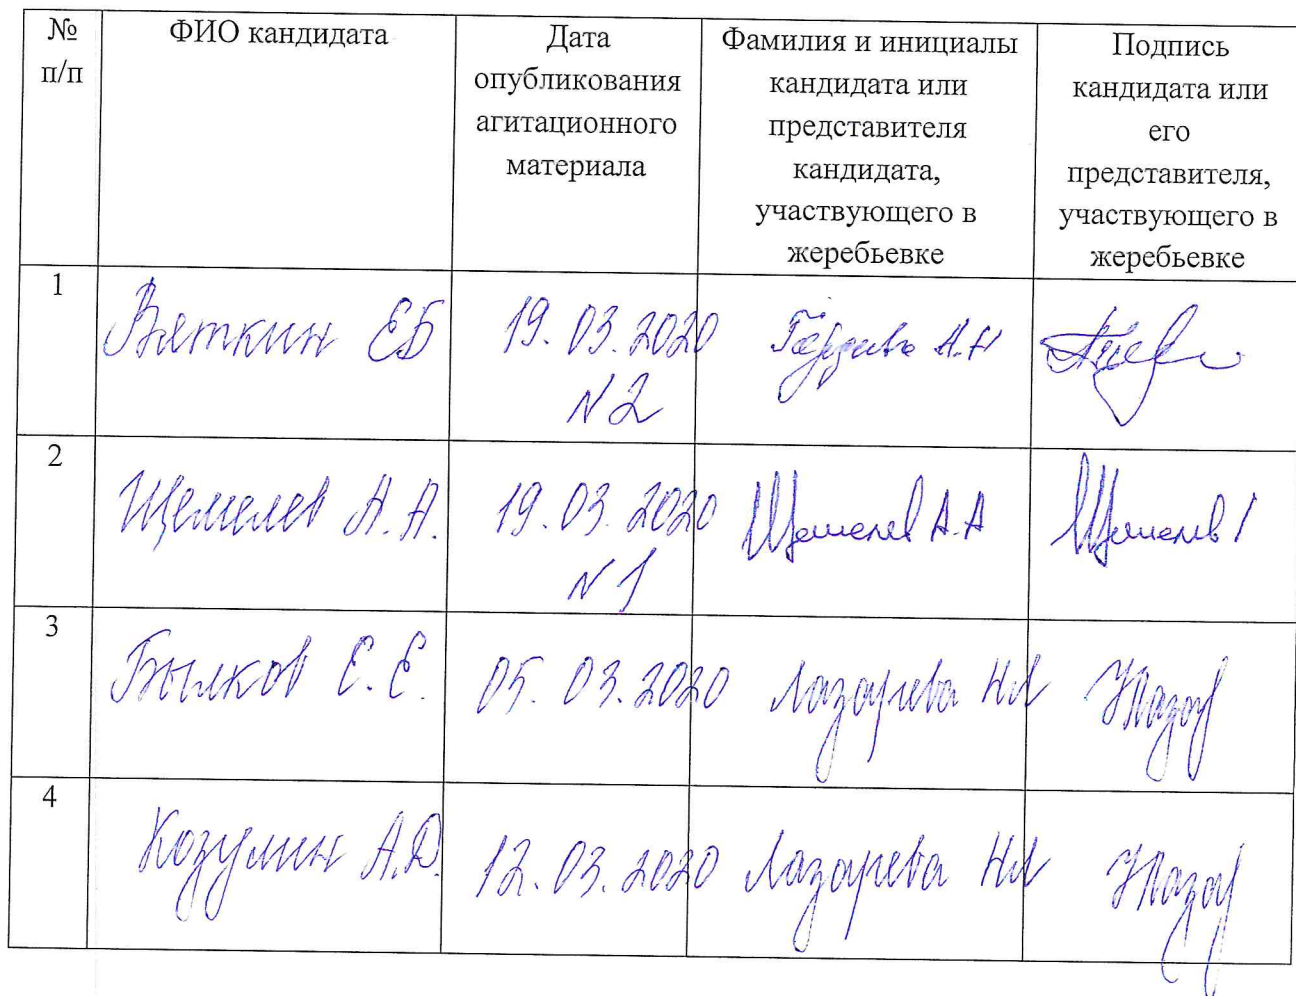 № п/п
ФИО кандидата
Дата опубликования агитационного материала
Фамилия и инициалы кандидата или представителя кандидата, участвующего в жеребьевке
Подпись кандидата или его представителя, участвующего в жеребьевке
1
Вяткин ЕБ
19.03.2020
N 2
А.Н
2
Щемелев А.А.
19.03.2020
N 1
Щемелев А.А
Щемелев
3
Былков Е.Е.
05.03.2020
Лазарева НЛ
4
Козулин А.Ю.
12.03.2020
Лазарева НЛ